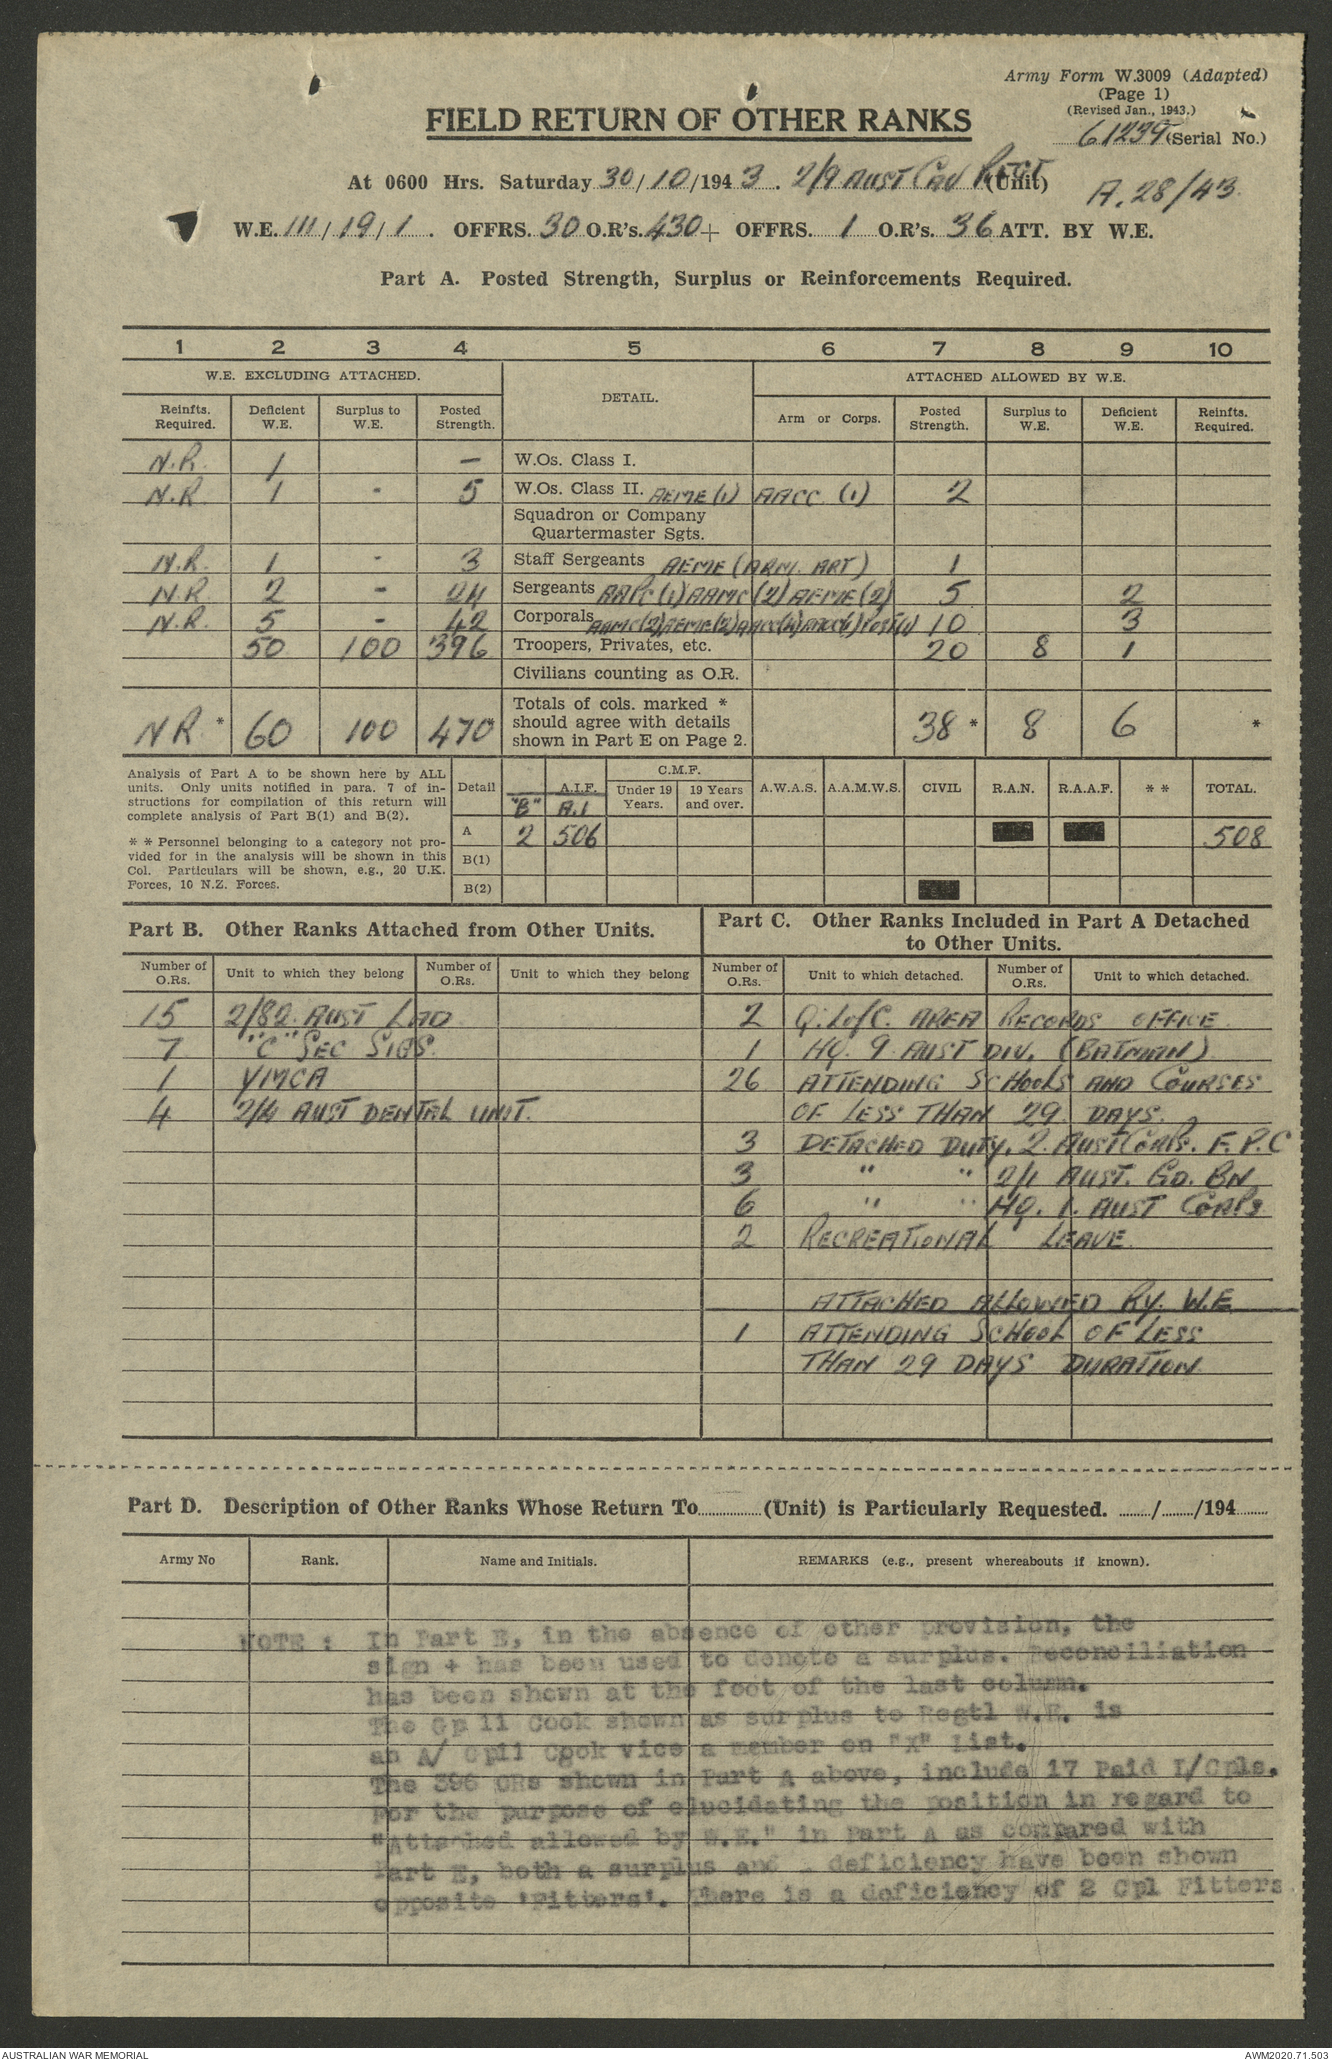 Army Form W.3009 (Adapted)
(Page 1)
(Revised Jan., 1943.)
FIELD RETURN OF OTHER RANKS
61239 (Serial No.)
At 0600 Hrs. Saturday 30/10/1943. 2/9 AUST CAV REGT (Unit)
A.28/43
W.E. III/19/1. OFFRS. 30 O.R's. 430 + OFFRS. 1 O.R's. 36 ATT. BY W.E.
Part A. Posted Strength, Surplus or Reinforcements Required.
1 2 3 4 5 6 7 8 9 10
W.E. EXCLUDING ATTACHED. DETAIL. ATTACHED ALLOWED BY W.E.
Reinfts. Required. Deficient W.E. Surplus to W.E. Posted Strength. Arm or Corps. Posted Strength. Surplus to W.E. Deficient W.E. Reinfts. Required.
N.R. 1 - W.Os. Class I.
N.R 1 - 5 W.Os. Class II. AEME (1) AACC (1) 2
Squadron or Company
Quartermaster Sgts.
N.R. 1 - 3 Staff Sergeants AEME (ARM. ART) 1
N.R 2 - 24 Sergeants AAPC (1) AAMC (2) AEME (2) 5 2
N.R. 5 - 42 Corporals AAMC (2) AEME (2) 10 3
50 100 396 Troopers, Privates, etc. 20 8 1
Civilians counting as O.R.
NR * 60 100 470* Totals of cols. marked * 38 * 8 6 *
should agree with details
shown in Part E on Page 2.
Analysis of Part A to be shown here by ALL
units. Only units notified in para. 7 of in-
structions for compilation of this return will
complete analysis of Part B(1) and B(2).
* * Personnel belonging to a category not pro-
vided for in the analysis will be shown in this
Col. Particulars will be shown, e.g., 20 U.K.
Forces, 10 N.Z. Forces.
Detail "B" A.I.F. A.1 C.M.F. Under 19 Years. 19 Years and over. A.W.A.S. A.A.M.W.S. CIVIL R.A.N. R.A.A.F. * * TOTAL.
A 2 506 508
B(1)
B(2)
Part B. Other Ranks Attached from Other Units.
Number of O.Rs. Unit to which they belong Number of O.Rs. Unit to which they belong
15 2/82. AUST LAD
7 "C" SEC SIGS.
1 YMCA
4 2/4 AUST DENTAL UNIT.
Part C. Other Ranks Included in Part A Detached
to Other Units.
Number of O.Rs. Unit to which detached. Number of O.Rs. Unit to which detached.
2 Q. L of C. AREA RECORDS OFFICE
1 HQ. 9 AUST DIV. (BATMAN)
26 ATTENDING SCHOOLS AND COURSES
OF LESS THAN 29 DAYS.
3 DETACHED DUTY. 2. AUST CORPS. F.P.C
3 " " 2/1 AUST. GD. BN
6 " " HQ. 1. AUST CORPS
2 RECREATIONAL LEAVE.
ATTACHED ALLOWED BY. W.E
1 ATTENDING SCHOOL OF LESS
THAN 29 DAYS DURATION
Part D. Description of Other Ranks Whose Return To (Unit) is Particularly Requested. / /194
Army No Rank. Name and Initials. REMARKS (e.g., present whereabouts if known).
NOTE : In Part E, in the absence of other provision, the
sign + has been used to denote a surplus. Reconciliation
has been shown at the foot of the last column.
The Gp 11 Cook shown as surplus to Regtl W.E. is
an A/ Cpll Cook vice a member on "X" List.
The 396 ORs shown in Part A above, include 17 Paid L/Cpls.
For the purpose of elucidating the position in regard to
"Attached allowed by W.E." in Part A as compared with
Part E, both a surplus and a deficiency have been shown
opposite 'Fitters'. There is a deficiency of 2 Cpl Fitters
AUSTRALIAN WAR MEMORIAL AWM2020.71.503